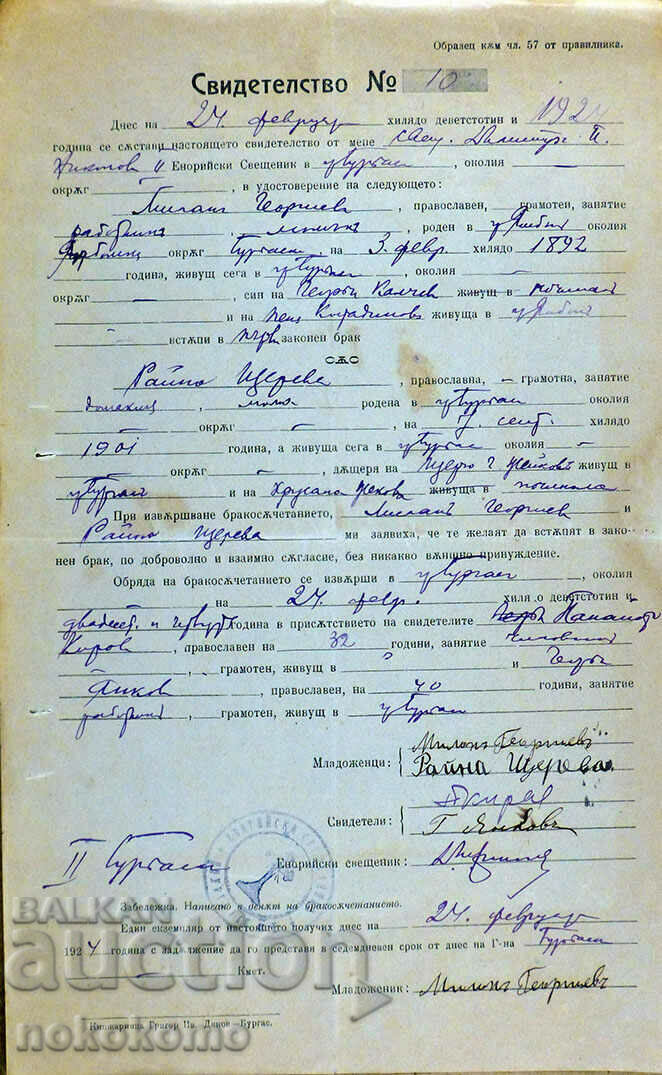 Образец кѫм чл. 57 от правилника.
Свидетелство № 10
Днес на 24 февруар хилядо деветстотин и 192
година се сѫстави настоящето свидетелство от мене свещ. Димитър П.
II Енорийски Свещеник в гр Бургас, околия
окрѫг — , в удостоверение на следующето:
Милан Георгиев, православен, грамотен, занятие
работник, момък, роден в гр Ямбол околия
Ямболиц окрѫг Бургаски на 3 февр. хилядо 1892
година, живущ сега в гр Бургас, околия —
окрѫг — , син на Георги Калчев живущ в
и на живуща в гр Ямбол
— встѫпи в първи законен брак
сѫс
Райна Щерева, православна, — грамотна, занятие
домакиц, мома родена в гр Бургас околия
— окрѫг — , на 7 септ. хилядо
1901 година, а живуща сега в гр Бургас околия —
— окрѫг — , дѫщеря на Щерю г. живущ в
гр Бургас и на живуща в починала
При извѫршване бракосѫчетанието, Милан Георгиев и
Райна Щерева ми заявиха, че те желаят да встѫпят в зако-
нен брак, по доброволно и взаимно сѫгласие, без никакво вѫншно принуждение.
Обряда на бракосѫчетанието се извѫрши в гр Бургас, околия
— на 24 февр. хилядо деветстотин и
двадесет и четвърта година в присѫтствието на свидетелите Панайот
Киров, православен на 32 години, занятие чиновник
, грамотен, живущ в " и Георги
Янков, православен, на 40 години, занятие
работник, грамотен, живущ в гр Бургас
Младоженци: Миланъ Георгиевъ
Райна Щерева
Свидетели: П Киров
Г Янковъ
II Бургаски Енорийски свещеник:
Забележка. Написано в денят на бракосѫчетанието.
Един екземпляр от настоящето получих днес на 24 февруар
1924 година с задѫлжение да го представя в седемдневен срок от днес на Г-на Бургаски
— Кмет.
Младоженик: Миланъ Георгиевъ
Книжарница Григор Ив. Динов—Бургас.
BALKAN
auction
nokokomo